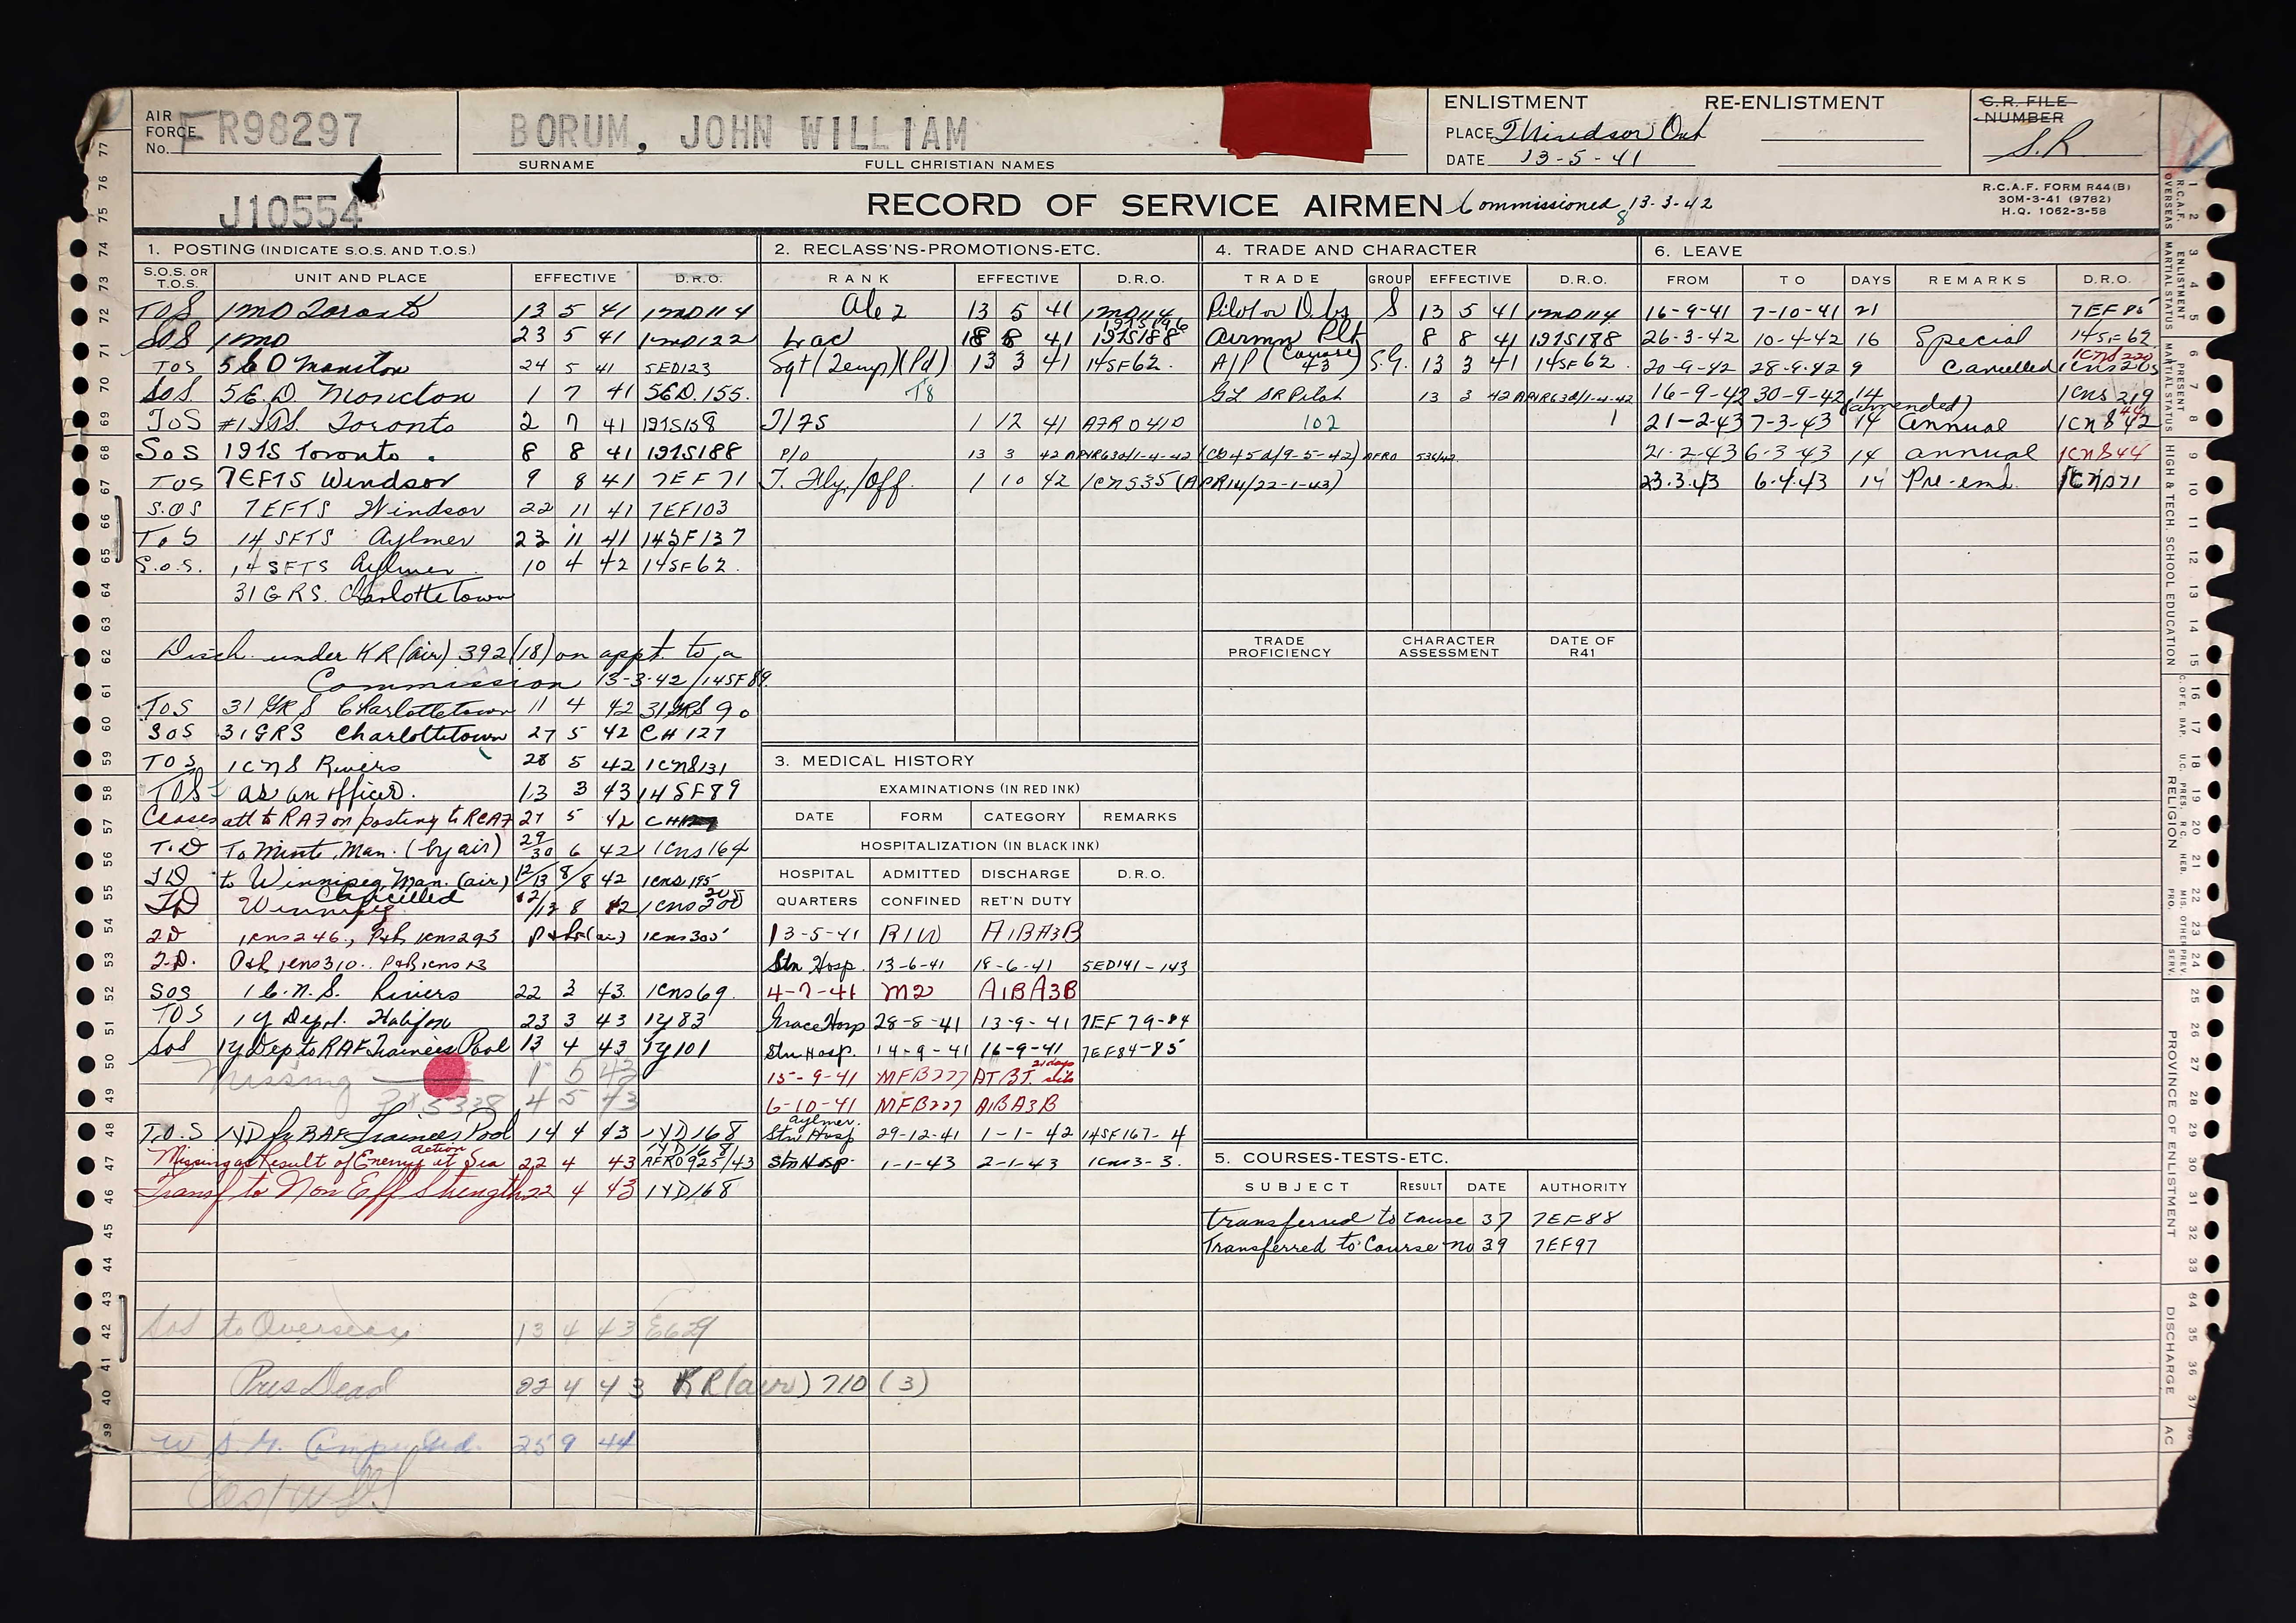 AIR FORCE No. F R98297
BORUM, JOHN WILLIAM
SURNAME FULL CHRISTIAN NAMES
ENLISTMENT RE-ENLISTMENT
PLACE Windsor Ont
DATE 13-5-41
C.R. FILE NUMBER
S.R
J10554
RECORD OF SERVICE AIRMEN Commissioned 13-3-42
R.C.A.F. FORM R44(B)
30M-3-41 (9782)
H.Q. 1062-3-58
1. POSTING (INDICATE S.O.S. AND T.O.S.)
S.O.S. OR T.O.S. UNIT AND PLACE EFFECTIVE D.R.O.
TOS 1MD Toronto 13 5 41 1MD114
SOS 1MD 23 5 41 1MD122
TOS 5ED Moncton 24 5 41 5ED123
SOS 5E.D. Moncton 1 7 41 5ED.155.
TOS #1 Toronto 2 7 41 1ITS158
SOS 1ITS Toronto. 8 8 41 1ITS188
TOS 7EFTS Windsor 9 8 41 7EF71
S.O.S 7EFTS Windsor 22 11 41 7EF103
T.O.S 14 SFTS Aylmer 23 11 41 14SF137
S.O.S. 14 SFTS Aylmer 10 4 42 14SF62.
31 GRS. Charlottetown
Disch. under KR(Air) 392(18) on appt. to a
Commission 13-3-42/14SF89.
TOS 31 GRS Charlottetown 11 4 42 31GRS90
SOS 31GRS Charlottetown 27 5 42 CH127
TOS 1CNS Rivers 28 5 42 1CNS131
TOS as an officer. 13 3 43 14SF89
Ceases att to RAF on posting to RCAF 27 5 42
T.D To Minto, Man. (by air) 29/30 6 42 1CNS164
TD to Winnipeg, Man. (air) 12/13 8/8 42 1CNS195
TD Winnipeg Cancelled 12/13 8 42 1CNS
TD 1CNS246., P&R 1CNS293 1CNS305
T.D. P&R 1CNS310.. P&R 1CNS13
SOS 1 C.N.S. Rivers 22 3 43. 1CNS69.
TOS 1Y Depot. Halifax 23 3 43 1Y83
SOS 1Y Dep to RAF Trainees Pool 13 4 43 1Y101
Missing 1 5 43
4 5 43
T.O.S 1YD fr RAF Trainees Pool 14 4 43 1YD168
Missing as Result of Enemy action at Sea 22 4 43 1YD168 AFRO925/43
Transf to Non Eff Strength 22 4 43 1YD168
SOS to Overseas 13 4 43 E629
Pres Dead 22 4 43 KR(air) 710 (3)
W.S.G. Computed. 25 9 44
2. RECLASS'NS-PROMOTIONS-ETC.
RANK EFFECTIVE D.R.O.
AC2 13 5 41 1MD114
Lac 8 8 41 1ITS196 1ITS188
Sgt (Temp)(Pd) 13 3 41 14SF62.
T8
1 12 41 AFRO410
P/O 13 3 42 APIR630/1-4-42 (CD450/9-5-42) AFRO 536/42
T. Fly./Off. 1 10 42 1CNS35 (APR14/22-1-43)
3. MEDICAL HISTORY
EXAMINATIONS (IN RED INK)
DATE FORM CATEGORY REMARKS
HOSPITALIZATION (IN BLACK INK)
HOSPITAL ADMITTED DISCHARGE D.R.O.
QUARTERS CONFINED RET'N DUTY
13-5-41 R1W A1BA3B
Stn Hosp. 13-6-41 18-6-41 5ED141-143
4-7-41 M2 A1BA3B
Grace Hosp 28-8-41 13-9-41 7EF79-84
Stn Hosp. 14-9-41 16-9-41 7EF84-85
15-9-41 MFB227 ATBT. 21 days
6-10-41 MFB227 A1BA3B
Aylmer. Stn Hosp 29-12-41 1-1-42 14SF167-4
Stn Hosp. 1-1-43 2-1-43 1CNS3-3.
4. TRADE AND CHARACTER
TRADE GROUP EFFECTIVE D.R.O.
Pilot or Obs S 13 5 41 1MD114
Airmn Plt 8 8 41 1ITS188
A/P (Course 43) S.G. 13 3 41 14SF62.
GL SR Pilot 13 3 42 APIR630/1-4-42
102
TRADE PROFICIENCY CHARACTER ASSESSMENT DATE OF R41
5. COURSES-TESTS-ETC.
SUBJECT RESULT DATE AUTHORITY
Transferred to course 37 7EF88
Transferred to Course no 39 7EF97
6. LEAVE
FROM TO DAYS REMARKS D.R.O.
16-9-41 7-10-41 21 7EF85
26-3-42 10-4-42 16 Special 14SF62
20-9-42 28-9-42 9 Cancelled 1CNS220
16-9-42 30-9-42 14 (amended) 1CNS219
21-2-43 7-3-43 14 Annual 1CNS42
21-2-43 6-3-43 14 annual 1CNS44
23.3.43 6.4.43 14 Pre-emb. 1CNS71
77 76 75 74 73 72 71 70 69 68 67 66 65 64 63 62 61 60 59 58 57 56 55 54 53 52 51 50 49 48 47 46 45 44 43 42 41 40 39
1 2 3 4 5 6 7 8 9 10 11 12 13 14 15 16 17 18 19 20 21 22 23 24 25 26 27 28 29 30 31 32 33 34 35 36 37
R.C.A.F. OVERSEAS
ENLISTMENT MARTIAL STATUS
PRESENT MARTIAL STATUS
HIGH & TECH. SCHOOL EDUCATION
C. OF E. BAP. U.C. PRES. R.C. HEB. MIS. OTHER PRO.
RELIGION
PREV. SERV.
PROVINCE OF ENLISTMENT
DISCHARGE
AC